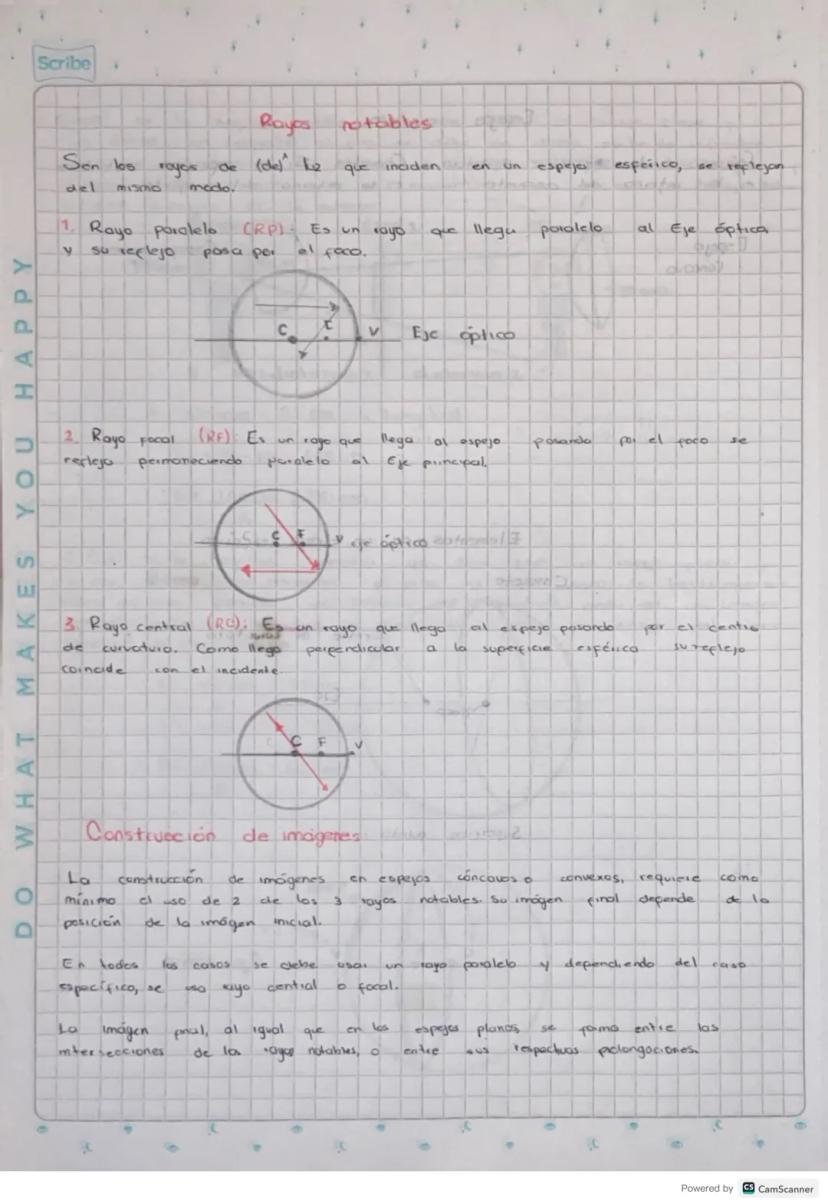 Scribe
DO WHAT MAKES YOU HAPPY
Rayos notables
Son los rayos de (de) luz que inciden en un espejo esférico, se reflejan
del mismo modo.
1. Rayo paralelo (RP): Es un rayo que llega paralelo al Eje óptico
y su reflejo pasa por el foco.
C F V Eje óptico
2. Rayo focal (RF): Es un rayo que llega al espejo pasando por el foco se
reflejo permaneciendo paralelo al Eje principal.
C F V eje óptico
3. Rayo central (RC): Es un rayo que llega al espejo pasando por el centro
de curvatura. Como llega perpendicular a la superficie esférica su reflejo
coincide con el incidente.
C F V
Construcción de imágenes
La construcción de imágenes en espejos cóncavos o convexos, requiere como
mínimo el uso de 2 de los 3 rayos notables. Su imágen final depende de la
posición de la imágen inicial.
En todos los casos se debe usar un rayo paralelo y dependiendo del caso
específico, se usa rayo central o focal.
La imágen final, al igual que en los espejos planos, se forma entre las
intersecciones de los rayos notables, o entre sus respectivas prolongaciones.
Powered by CS CamScanner